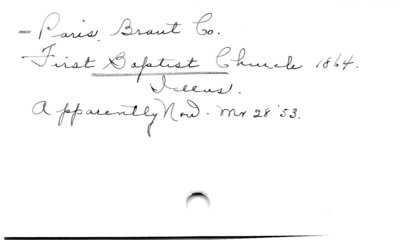 - Paris, Brant Co.
First Baptist Church 1864.
Illus.
Apparently Nov. Mr 28 '53.